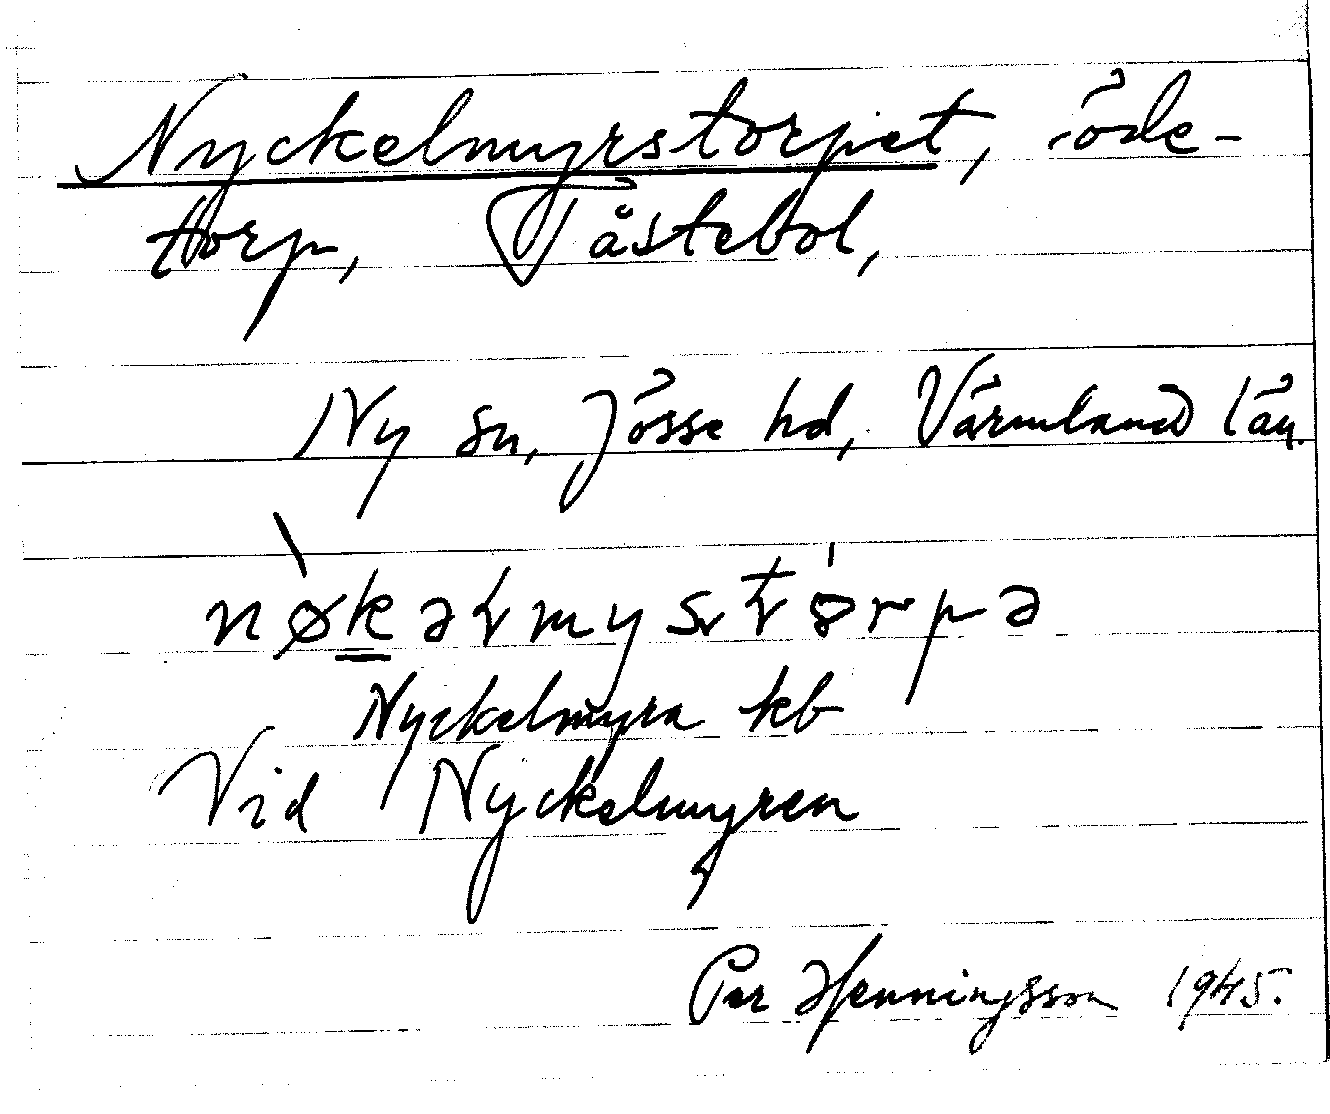 Nyckelmyrstorpet, öde-
torp, Tåstebol,
Ny sn, Jösse hd, Värmland län.
Nyckelmyra kb
Vid Nyckelmyren
Per Henningsson 1945.